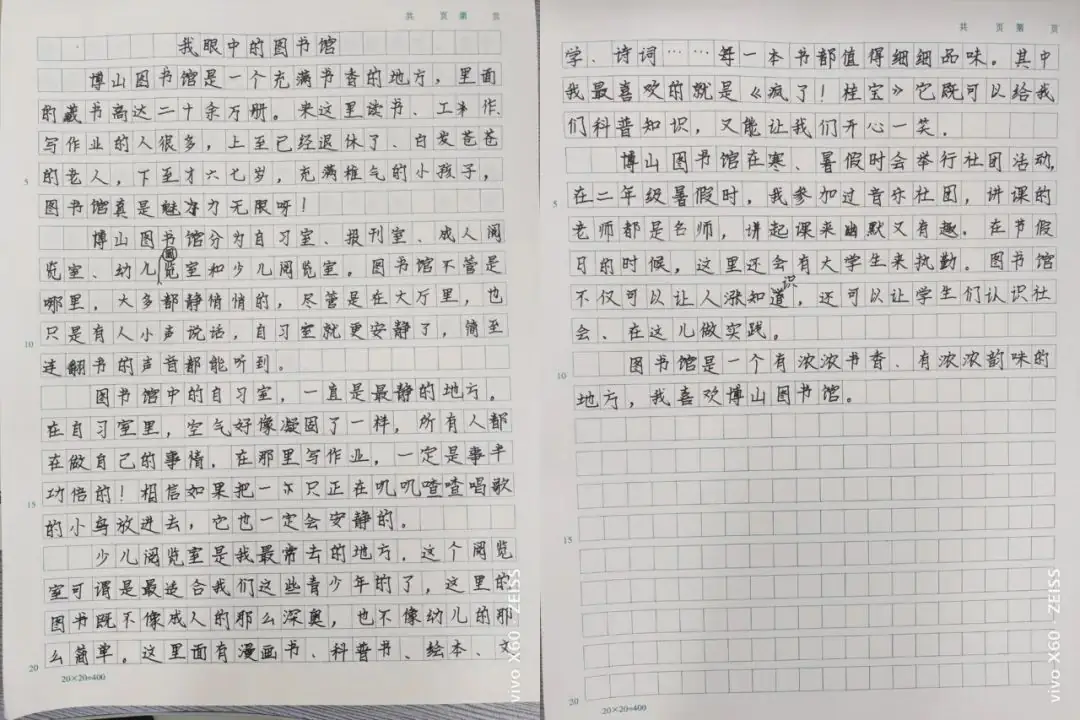 共 页 第 页
我眼中的图书馆
博山图书馆是一个充满书香的地方，里面
的藏书高达二十余万册。来这里读书、工作、
写作业的人很多，上至已经退休了、白发苍苍
的老人，下至才六七岁，充满稚气的小孩子，
5
图书馆真是魅力无限呀！
博山图书馆分为自习室、报刊室、成人阅
览室、幼儿阅览室和少儿阅览室。图书馆不管是
哪里，大多都静悄悄的，尽管是在大厅里，也
只是有人小声说话，自习室就更安静了，简至
10
连翻书的声音都能听到。
图书馆中的自习室，一直是最静的地方。
在自习室里，空气好像凝固了一样，所有人都
在做自己的事情，在那里写作业，一定是事半
功倍的！相信如果把一只正在叽叽喳喳唱歌
15
的小鸟放进去，它也一定会安静的。
少儿阅览室是我最常去的地方．这个阅览
室可谓是最适合我们这些青少年的了，这里的
图书既不像成人的那么深奥，也不像幼儿的那
么简单。这里面有漫画书、科普书、绘本、文
20
20×20=400
vivo X60 · ZEISS
共 页 第 页
学、诗词……每一本书都值得细细品味。其中
我最喜欢的就是《疯了！桂宝》它既可以给我
们科普知识，又能让我们开心一笑．
博山图书馆在寒、暑假时会举行社团活动，
在二年级暑假时，我参加过音乐社团，讲课的
5
老师都是名师，讲起课来幽默又有趣．在节假
日的时候，这里还会有大学生来执勤。图书馆
不仅可以让人涨知识，还可以让学生们认识社
会、在这儿做实践。
图书馆是一个有浓浓书香、有浓浓韵味的
10
地方，我喜欢博山图书馆。
15
20
20×20=400
vivo X60 · ZEISS